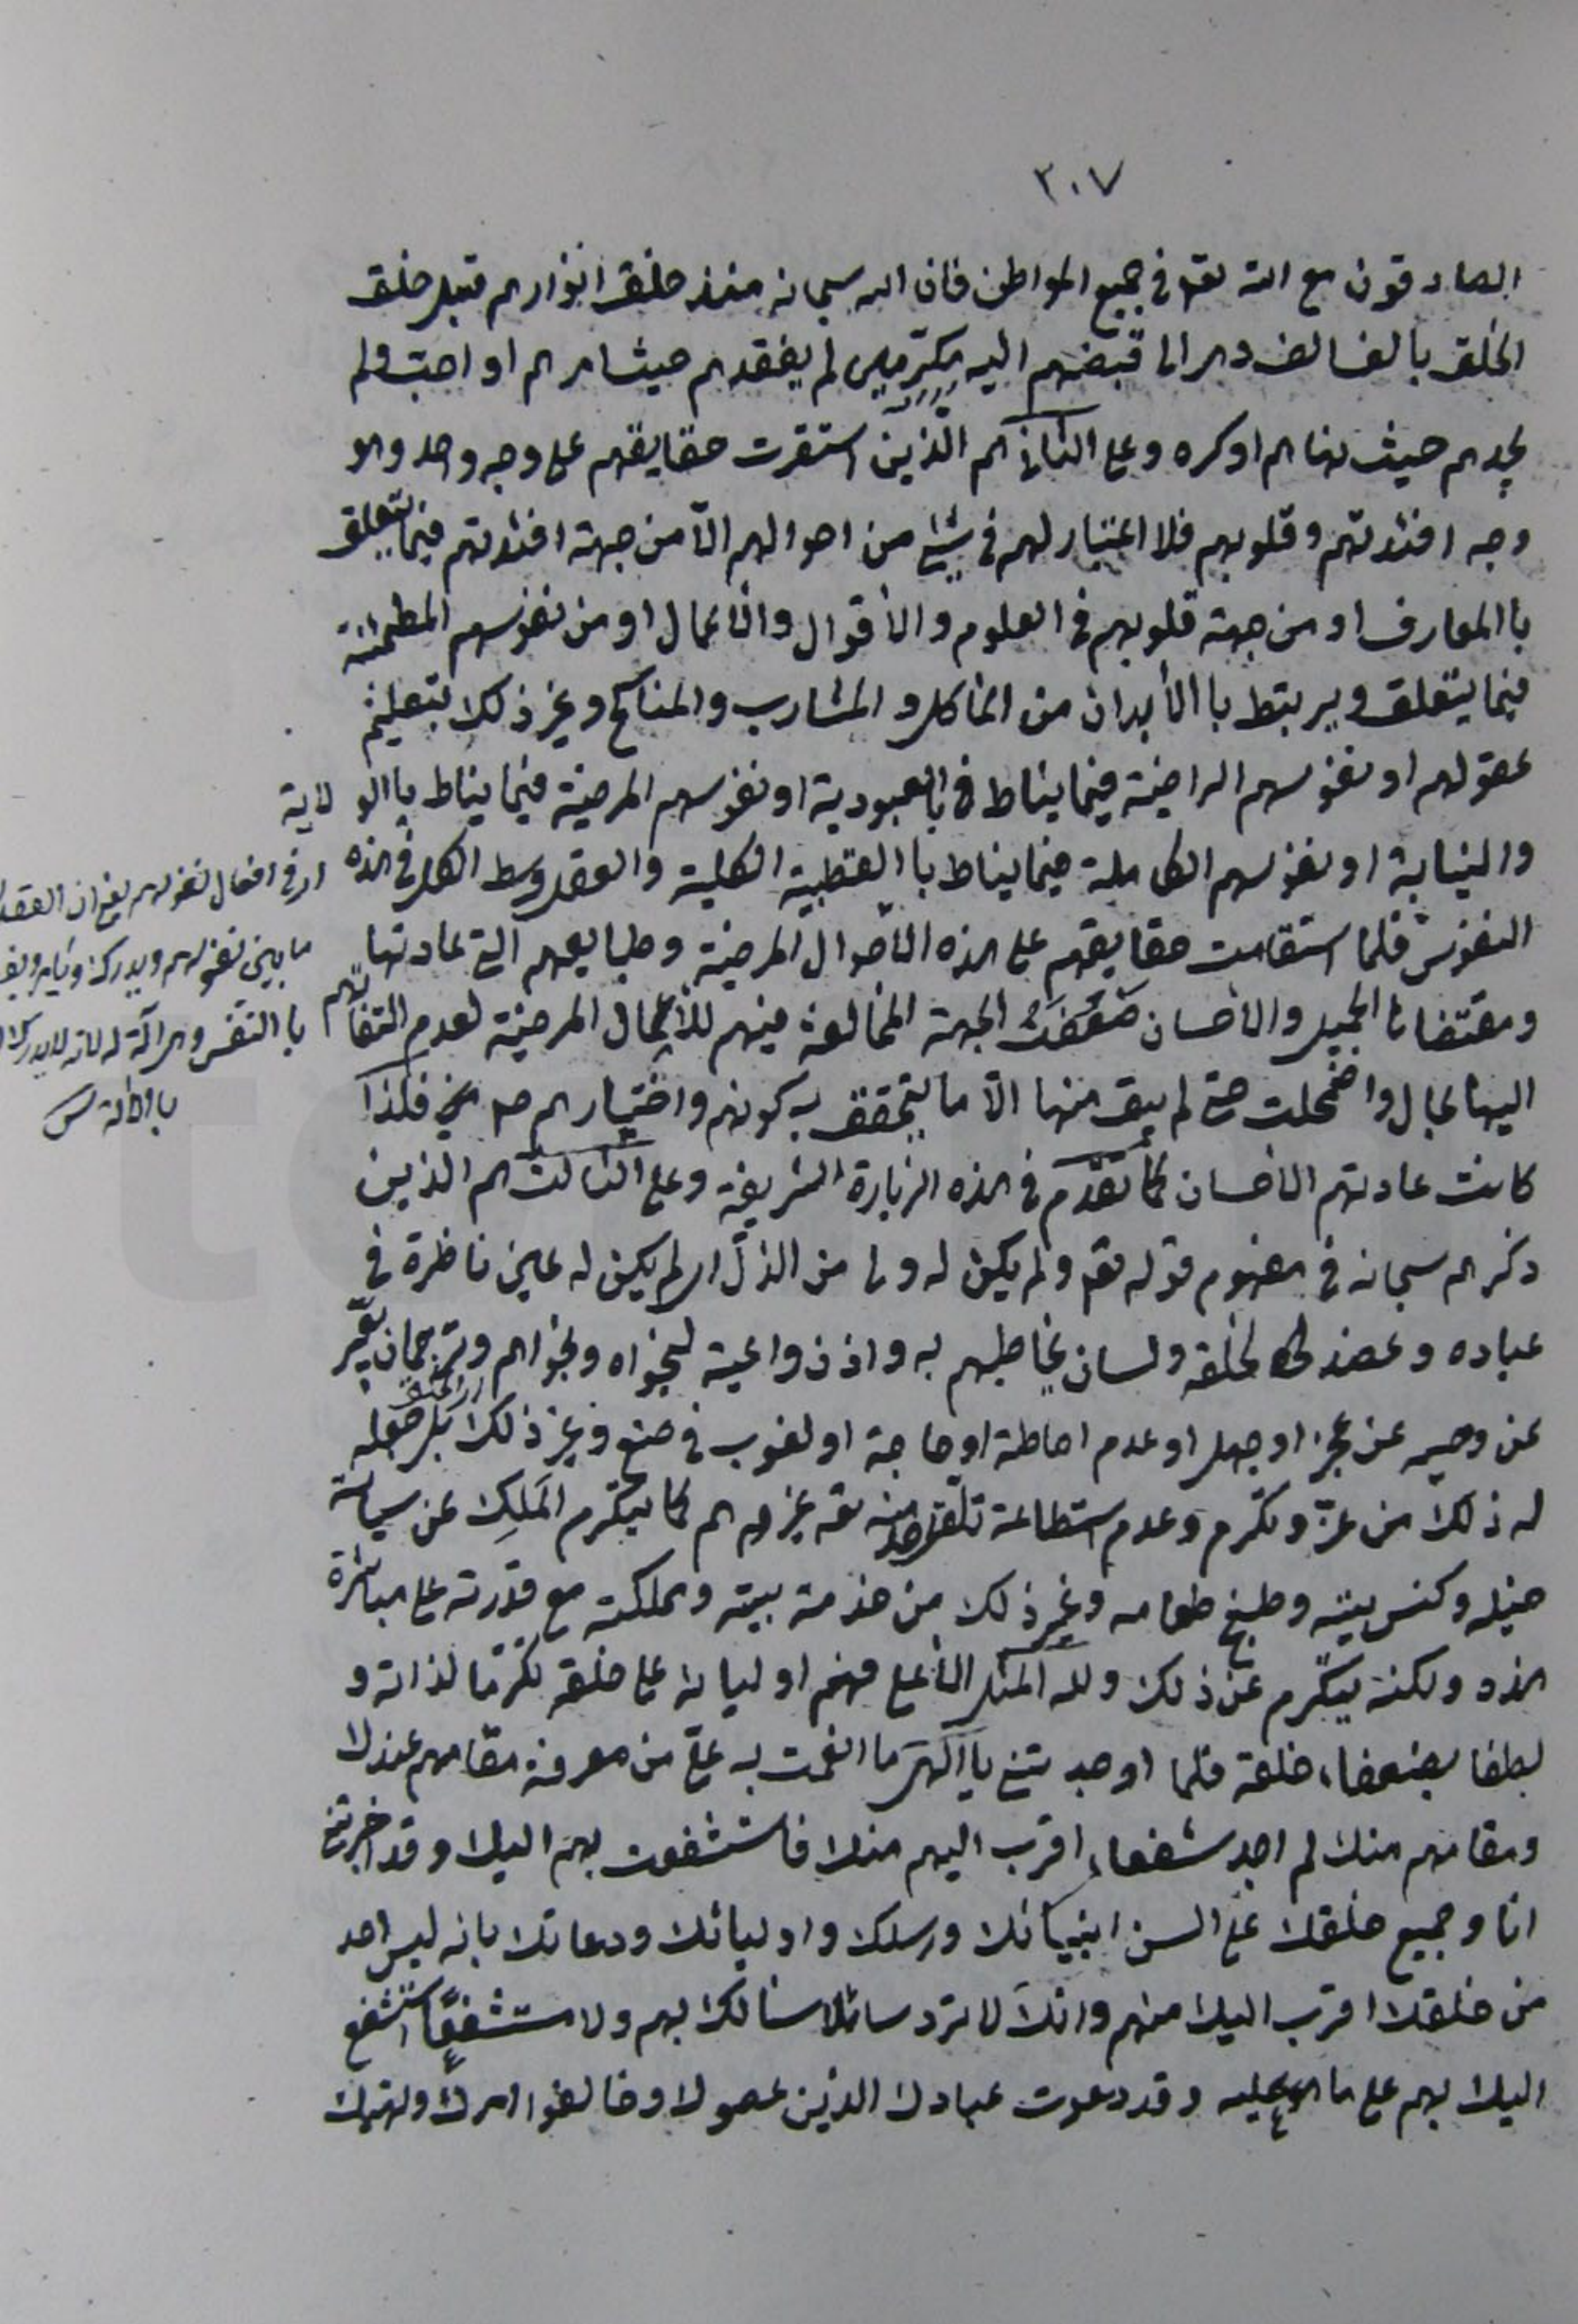 ٣٠٧
الصادقون مع الله تعه في جميع المواطن فان اله سبحانه منذ خلق انوارهم قبل خلق
الخلق بالف الف دهر الى قبضهم اليه مكرّمين لم يفقدهم حيث امرهم او احبّ ولم
يجدهم حيث نهاهم او كره وعلى الثاني هم الّذين استقرت حقايقهم على وجه واحد وهو
وجه افئدتهم وقلوبهم فلا اعتبار لهم في شئ من احوالهم الّا من جهة افئدتهم فيما يتعلق
با المعارف او من جهة قلوبهم في العلوم والأقوال والأعمال او من نفوسهم المطمئنة
فيما يتعلق ويرتبط با الأبدان من المآكل والمشارب والمناكح وغير ذلك بتعليم
عقولهم او نفوسهم الراضية فيما يناط في با العبودية او نفوسهم المرضية فيما يناط با الولاية
والنيابة او نفوسهم الكاملة فيما يناط با القطبية الكلية والعقل وسط الكل في هذه
النفوس فلما استقامت حقايقهم على هذه الأحوال المرضية وطبايعهم التي عادتها
ومقتضاها الجميل والأحسان ضَعُفَتْ الجهة المخالفة فيهم للأعمال المرضية لعدم التفاتهم
اليها بحال واضمحلت حتى لم يبق منها الّا ما يتحقق به كونهم واختيارهم فلذا
كانت عادتهم الأحسان كما تقدّم في هذه الزيارة الشريفة وعلى الثالث هم الذين
ذكرهم سبحانه في مفهوم قوله تعه ولم يكن له ولي من الذلّ اي لم يكن له عين ناظرة في
عباده وعضد لخلقه ولسان يخاطبهم به واذن واعية لنجواه ونجواهم وترجمان يعبّر
عن وحيه عن عجز او جهل او عدم احاطة او حاجة او لغوب في صنع وغير ذلك بل جعله
له ذلك من عزّ وتكرم وعدم استطاعة تلقّي منه تعه غيرهم كما يتكرّم المَلِك عن سياسة
خيله وكنس بيته وطبخ طعامه وغير ذلك من خدمة بيته ومملكته مع قدرته على مباشرة
هذه ولكنه يتكرّم عن ذلك ولله المثل الأعلى فهم اولياؤه على خلقه تكرّما لذاته و
لطفا بضعفاء خلقه فلما اوجدتني يا الهي ما انعمت به عليّ من معرفة مقامهم عندك
ومقامهم منك لم اجد شفعاء اقرب اليهم منك فاستشفعت بهم اليك وقد اخبرتني
انا وجميع خلقك على السن انبيائك ورسلك واوليائك ودعاتك بانه ليس احد
من خلقك اقرب اليك منهم وانك لا تردّ سائلا سألك بهم ولا مستشفعًا استشفع
اليك بهم على ما هو عليه وقد دعوت عبادك الذين عصوك وخالفوا امرك ونهيك
اي في افعال نفوسهم يعني ان العقل
ما بين نفوسهم ويدرك
با النفس وهي آلة له لأنه لا يدرك